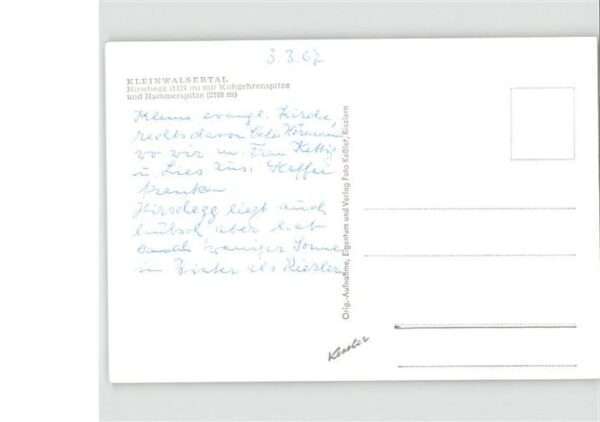 3.3.67
KLEINWALSERTAL
Hirschegg (1125 m) mit Kuhgehrenspitze
und Hammerspitze (2768 m)
Kleine evangl. Kirche,
rechts davon Cafe Hörmann
wo wir m. Frau Kettig
u. Lies zus. Kaffee
tranken
Hirschegg liegt auch
hübsch aber hat
weniger Sonne
im Winter als Riezlern
Orig.-Aufnahme, Eigentum und Verlag Foto Keßler, Riezlern
Kessler